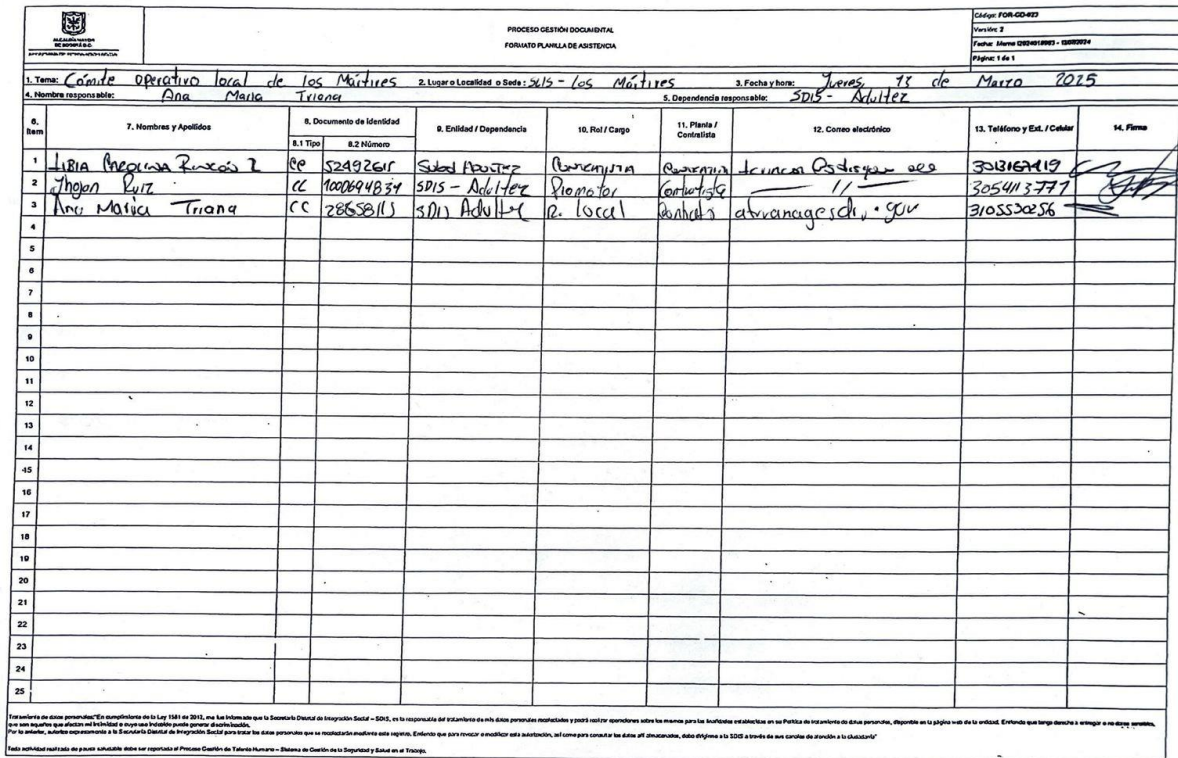 ALCALDÍA MAYOR
DE BOGOTÁ D.C.
PROCESO GESTIÓN DOCUMENTAL
FORMATO PLANILLA DE ASISTENCIA
Código: FOR-GD-023
Versión: 2
Página: 1 de 1
1. Tema: Cómite operativo local de los Mártires 2. Lugar o Localidad o Sede: SLIS - Los Mártires 3. Fecha y hora: Jueves, 13 de Marzo 2025
4. Nombre responsable: Ana Maria Triana 5. Dependencia responsable: SDIS - Adultez
6. Item 7. Nombres y Apellidos 8. Documento de identidad 9. Entidad / Dependencia 10. Rol / Cargo 11. Planta / Contratista 12. Correo electrónico 13. Teléfono y Ext. / Celular 14. Firma
8.1 Tipo 8.2 Número
1 52492615
2 Jhojan Ruiz CC 1000694834 SDIS - Adultez Promotor Contratista // 3054113777
3 Ana Maria Triana CC 28658115 SDIS Adultez R. local 3105530256
4
5
6
7
8
9
10
11
12
13
14
15
16
17
18
19
20
21
22
23
24
25
Tratamiento de datos personales:"En cumplimiento de la Ley 1581 de 2012, me fue informado que la Secretaría Distrital de Integración Social – SDIS, es la responsable del tratamiento de mis datos personales recolectados y podrá realizar operaciones sobre los mismos para las finalidades establecidas en su Política de tratamiento de datos personales, disponible en la página web de la entidad. Entiendo que tengo derecho a entregar o no datos sensibles,
que son aquellos que afectan mi intimidad o cuyo uso indebido puede generar discriminación.
Por lo anterior, autorizo expresamente a la Secretaría Distrital de Integración Social para tratar los datos personales que se recolectarán mediante este registro. Entiendo que para revocar o modificar esta autorización, así como para consultar los datos allí almacenados, debo dirigirme a la SDIS a través de sus canales de atención a la ciudadanía"
Toda actividad realizada de pausa saludable debe ser reportada al Proceso Gestión de Talento Humano – Sistema de Gestión de la Seguridad y Salud en el Trabajo.